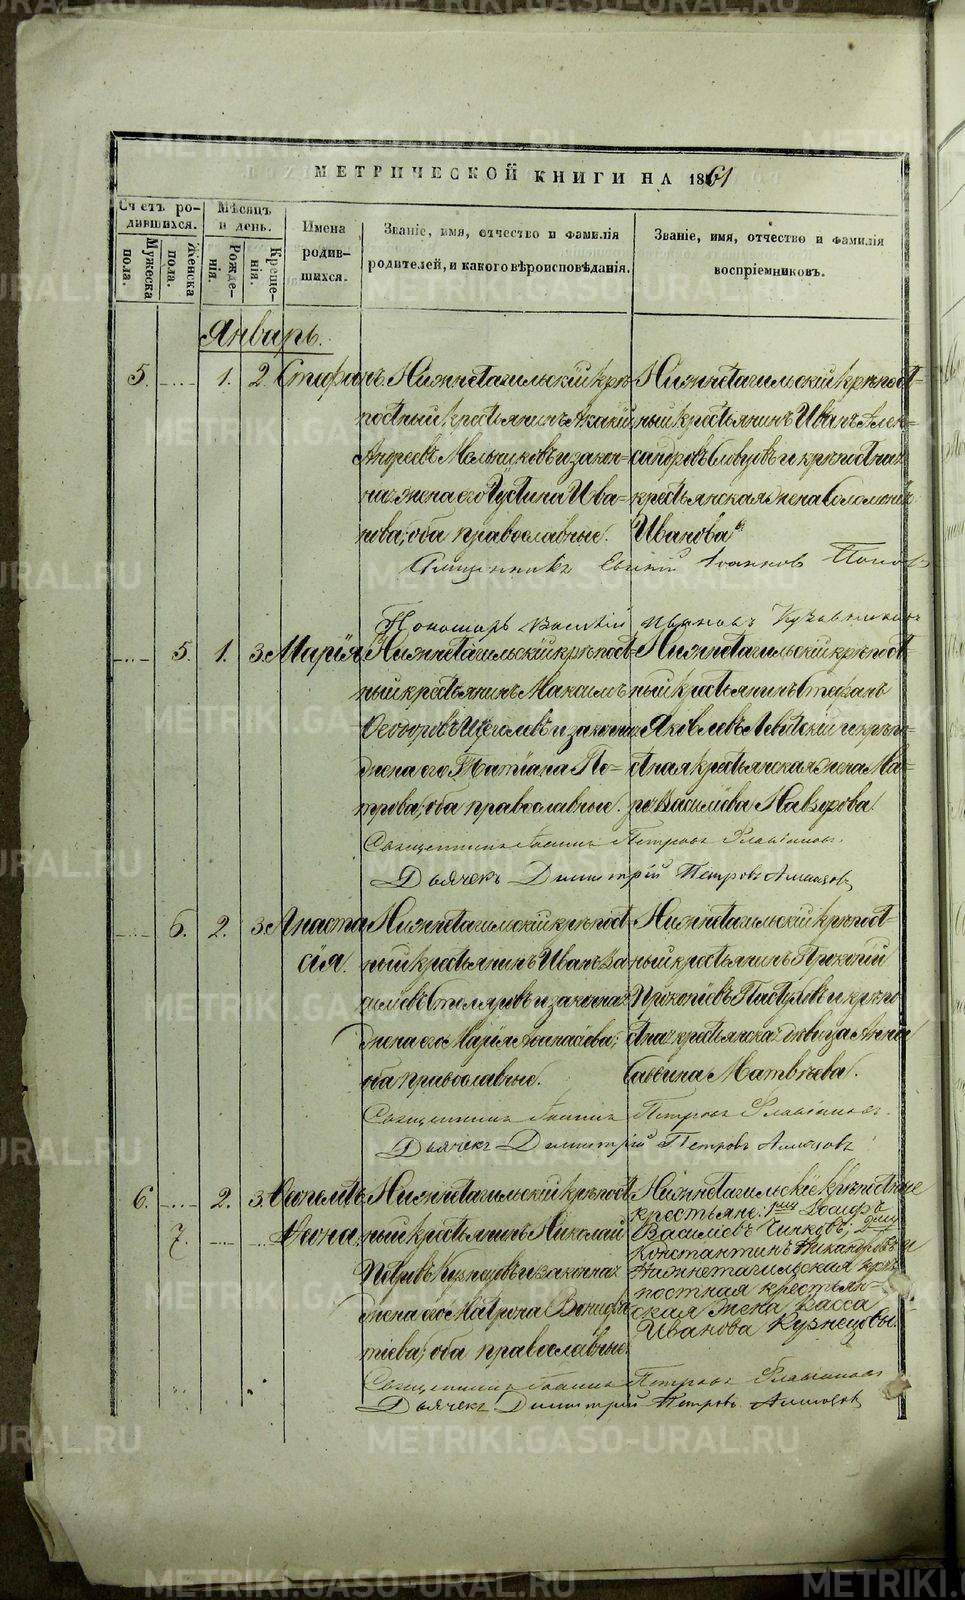 МЕТРИЧЕСКОЙ КНИГИ НА 1861
Счетъ ро-
дившихся.
Мужеска
пола.
Женска
пола.
Мѣсяцъ
и день.
Рожде-
нія.
Креще-
нія.
Имена
родив-
шихся.
Званіе, имя, отчество и фамилія
родителей, и какого вѣроисповѣданія.
Званіе, имя, отчество и фамилія
воспріемниковъ.
Январь.
5. 1. 2. Стефанъ.
Нижнетагильскій крѣ-
постный крестьянинъ Акакій
Андреевъ Мельниковъ и закон-
ная жена его Іустина Ива-
нова; оба православные.
Нижнетагильскій крѣпост-
ный крестьянинъ Иванъ Алек-
сандровъ Словцовъ и крѣпостная
крестьянская жена Соломонія
Иванова
Священникъ Іоаннов Попов
Пономарь Василій Ивановъ
5. 1. 3. Марія
Нижнетагильскій крѣпост-
ный крестьянинъ Максимъ
Феодоровъ Щеголевъ и законная
жена его Татіана Пе-
трова; оба православные.
Нижнетагильскій крѣпост-
ный крестьянинъ Стефанъ
Яковлевъ Левитскій и крѣпо-
стная крестьянская жена Ма-
рѳа Васильева Назарова.
Священникъ Іоаннъ Петровъ Флавіановъ.
Дьячекъ Димитрій Петровъ Алмазовъ
6. 2. 3. Анаста-
сія.
Нижнетагильскій крѣпост-
ный крестьянинъ Иванъ Ва-
сильевъ Столяровъ и законная
жена его Марія Аѳанасіева;
оба православные.
Нижнетагильскій крѣпост-
ный крестьянинъ Прокопій
Прокопіевъ Пастуховъ и крѣпо-
стная крестьянская дѣвица Анна
Саввина Матвѣева.
Священникъ Іоаннъ Петровъ Флавіановъ.
Дьячекъ Димитрій Петровъ Алмазовъ
6. 2. 3. Ѳеопемптъ
7. Ѳеона.
Нижнетагильскій крѣпост-
ный крестьянинъ Николай
Петровъ Кузнецовъ и законная
жена его Матрона Вонифа-
тіева; оба православные.
Нижнетагильскіе крѣпостные
крестьяне: 1й Іосифъ
Васильевъ Чирковъ; 2й
Константинъ Никандровъ и
Нижнетагильская крѣ-
постная крестьян-
ская жена Васса
Иванова Кузнецовы.
Священникъ Іоаннъ Петровъ Флавіановъ
Дьячекъ Димитрій Петровъ Алмазовъ
METRIKI.GASO-URAL.RU